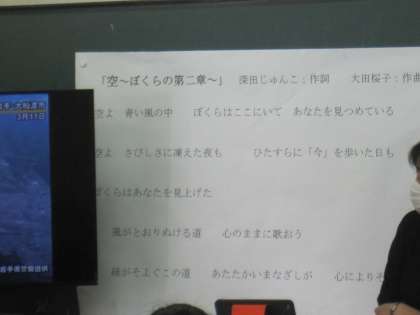 「空～ぼくらの第二章～」 深田じゅんこ：作詞 大田桜子：作曲
空よ 青い風の中 ぼくらはここにいて あなたを見つめている
空よ さびしさに凍えた夜も ひたすらに「今」を歩いた日も
ぼくらはあなたを見上げた
風がとおりぬける道 心のままに歌おう
緑がそよぐこの道 あたたかいまなざしが 心によりそ
大船渡市
3月11日
岩手県警察提供